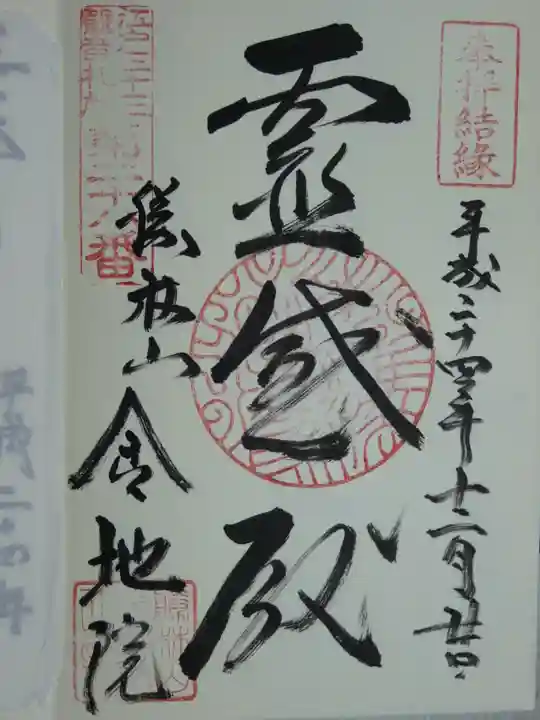 奉拝結縁
平成二十四年十二月廿四日
靈感殿
勝林山金地院
江戸三十三
観音札所
第二十八番
平成二十四年